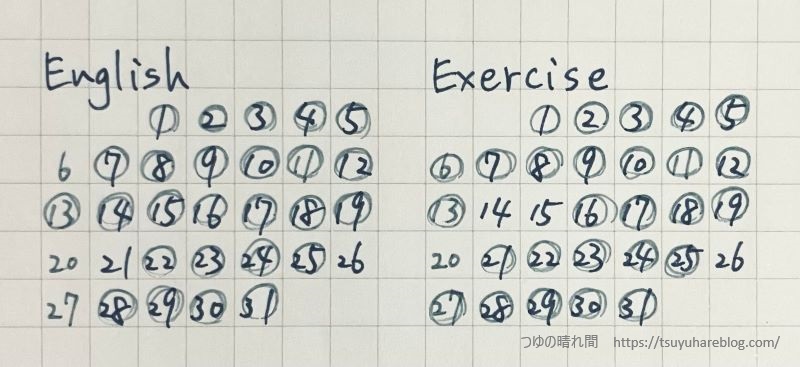 English
1 2 3 4 5
6 7 8 9 10 11 12
13 14 15 16 17 18 19
20 21 22 23 24 25 26
27 28 29 30 31
Exercise
1 2 3 4 5
6 7 8 9 10 11 12
13 14 15 16 17 18 19
20 21 22 23 24 25 26
27 28 29 30 31
つゆの晴れ間 https://tsuyuhareblog.com/